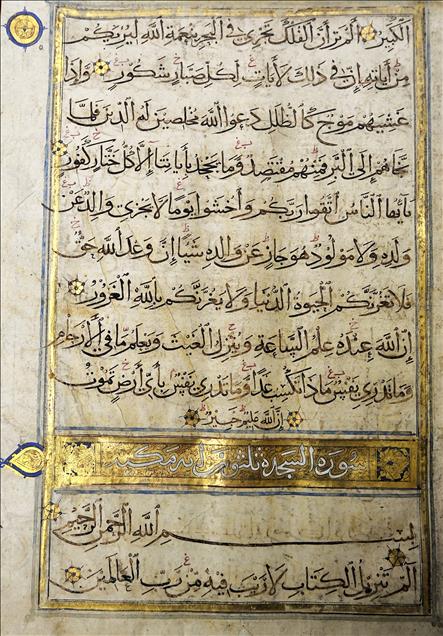 الْكَبِيرُ أَلَمْ تَرَ أَنَّ الْفُلْكَ تَجْرِي فِي الْبَحْرِ بِنِعْمَةِ اللَّهِ لِيُرِيَكُمْ
مِنْ آيَاتِهِ إِنَّ فِي ذَلِكَ لَآيَاتٍ لِكُلِّ صَبَّارٍ شَكُورٍ وَإِذَا
غَشِيَهُمْ مَوْجٌ كَالظُّلَلِ دَعَوُا اللَّهَ مُخْلِصِينَ لَهُ الدِّينَ فَلَمَّا
نَجَّاهُمْ إِلَى الْبَرِّ فَمِنْهُمْ مُقْتَصِدٌ وَمَا يَجْحَدُ بِآيَاتِنَا إِلَّا كُلُّ خَتَّارٍ كَفُورٍ
يَا أَيُّهَا النَّاسُ اتَّقُوا رَبَّكُمْ وَاخْشَوْا يَوْمًا لَا يَجْزِي وَالِدٌ عَنْ
وَلَدِهِ وَلَا مَوْلُودٌ هُوَ جَازٍ عَنْ وَالِدِهِ شَيْئًا إِنَّ وَعْدَ اللَّهِ حَقٌّ
فَلَا تَغُرَّنَّكُمُ الْحَيَوةُ الدُّنْيَا وَلَا يَغُرَّنَّكُمْ بِاللَّهِ الْغَرُورُ
إِنَّ اللَّهَ عِنْدَهُ عِلْمُ السَّاعَةِ وَيُنَزِّلُ الْغَيْثَ وَيَعْلَمُ مَا فِي الْأَرْحَامِ
وَمَا تَدْرِي نَفْسٌ مَاذَا تَكْسِبُ غَدًا وَمَا تَدْرِي نَفْسٌ بِأَيِّ أَرْضٍ تَمُوتُ
إِنَّ اللَّهَ عَلِيمٌ خَبِيرٌ
سورة السجدة ثلثون آية مكية
بِسْمِ اللَّهِ الرَّحْمَنِ الرَّحِيمِ
الم تَنْزِيلُ الْكِتَابِ لَا رَيْبَ فِيهِ مِنْ رَبِّ الْعَالَمِينَ